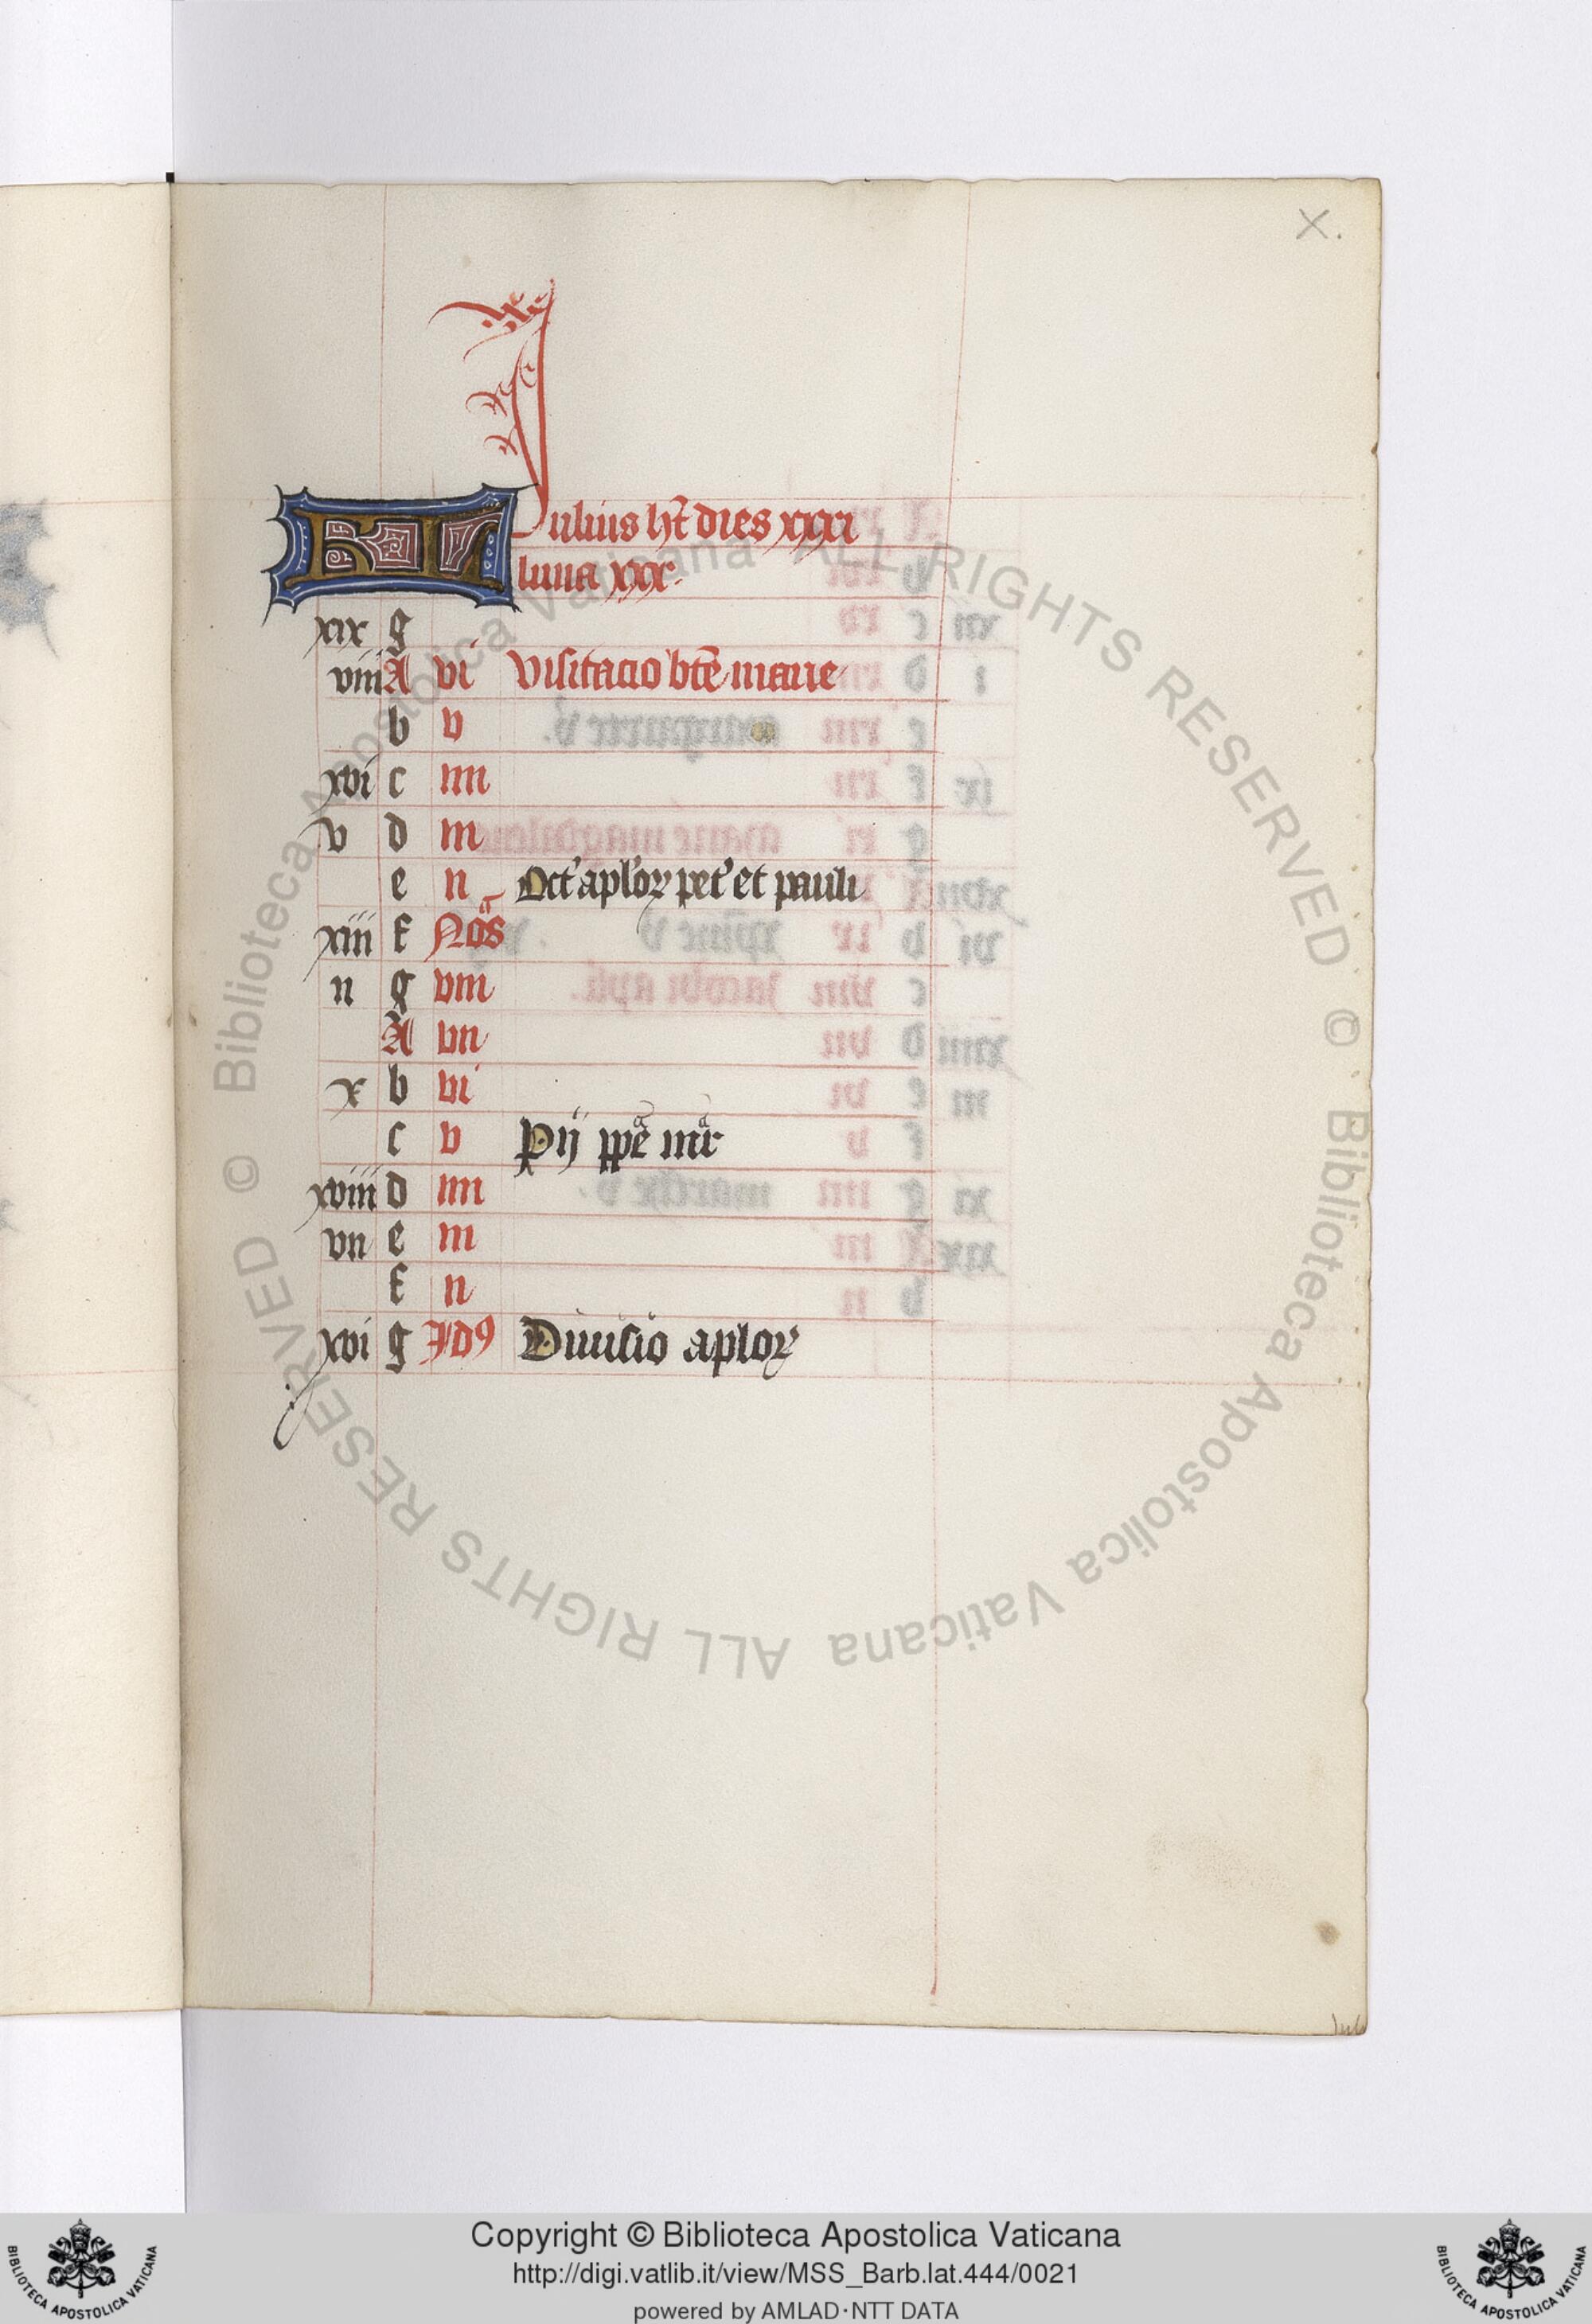 X.
KL Julius ht dies xxxi
luna xxx.
xix g
viii A vi Visitacio bte marie
b v
xvi c iiii
v d iii
e ii Oct' aplor pet' et pauli
xiii f Noas
ii g viii
A vii
x b vi
c v Pij ppe mr
xviii d iiii
vii e iii
f ii
xvi g Id9 Diuisio aplor
© Biblioteca Apostolica Vaticana ALL RIGHTS RESERVED
© Biblioteca Apostolica Vaticana ALL RIGHTS RESERVED
Copyright © Biblioteca Apostolica Vaticana
http://digi.vatlib.it/view/MSS_Barb.lat.444/0021
powered by AMLAD·NTT DATA
BIBLIOTECA APOSTOLICA VATICANA
BIBLIOTECA APOSTOLICA VATICANA